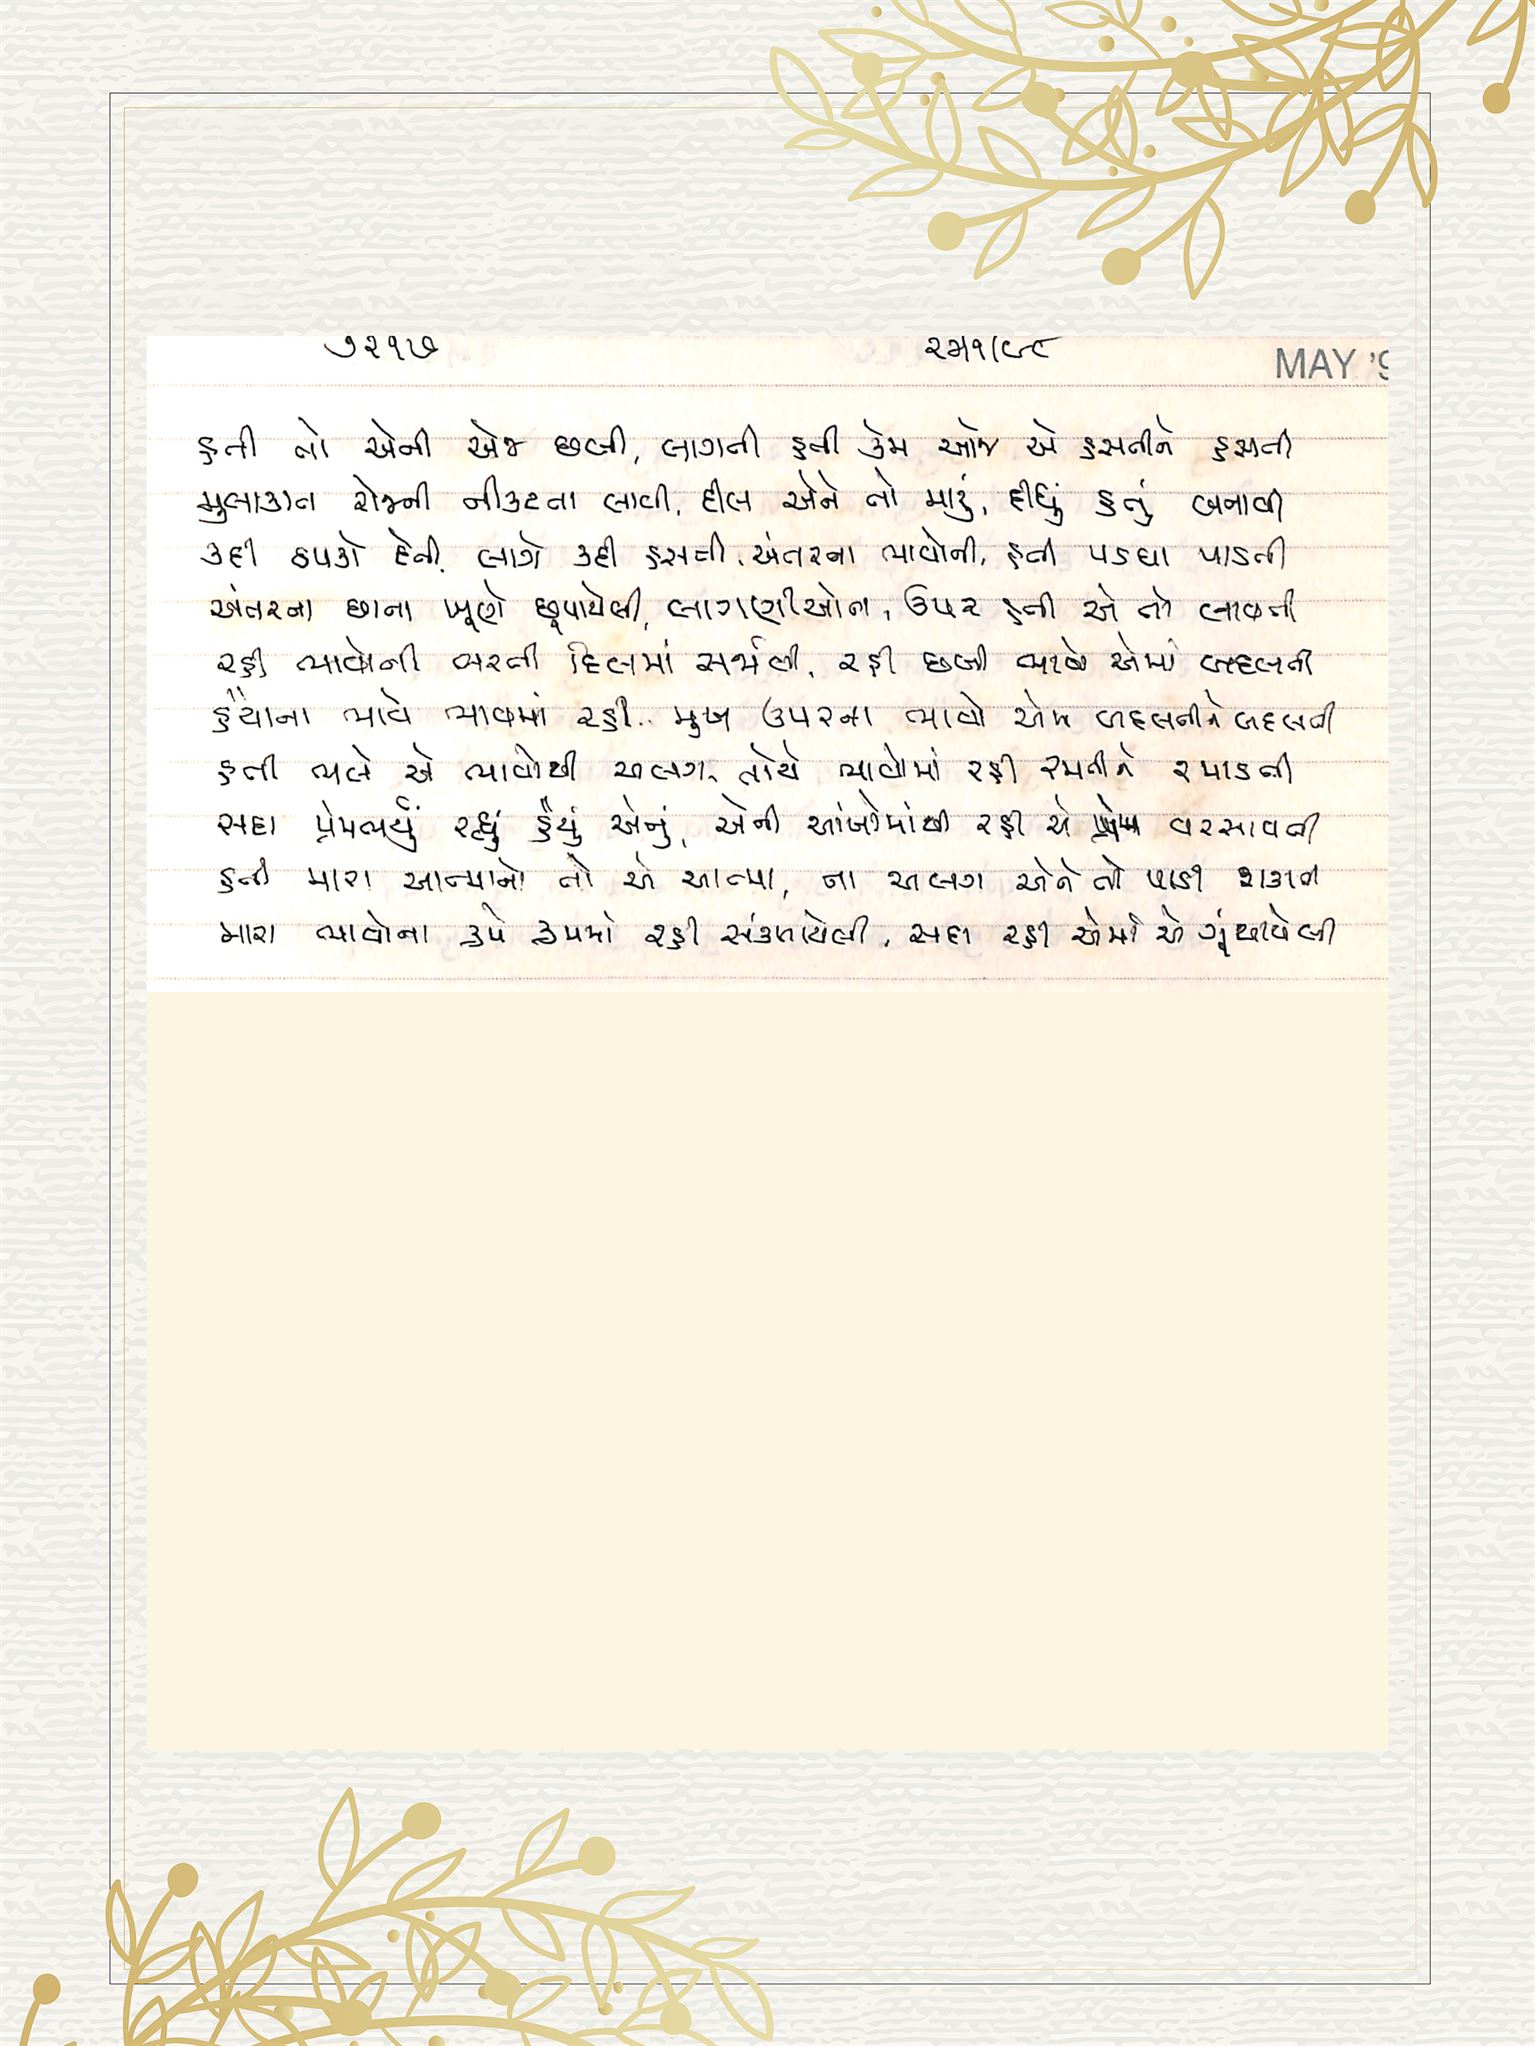 ૭૨૧૭
MAY '9
હતી તો એની એજ છબી, લાગતી હતી કેમ આજે એ હસતીને હસતી
મુલાકાત રોજની નીકટતા લાવી, દીલ એને તો મારું, દીધું હતું બનાવી
કદી ઠપકો દેતી, લાગે કદી હસતી, અંતરના ભાવોની, હતી પડઘા પાડતી
અંતરના છાના ખૂણે છૂપાયેલી, લાગણીઓને, ઉપર હતી એ તો લાવતી
રહી ભાવોની ભરતી દિલમાં સર્જાતી, રહી છબી ભાવો એમાં બદલતી
હૈયાના ભાવે ભાવમાં રહી.. મુખ ઉપરના ભાવો એમ બદલતીને બદલતી
હતી ભલે એ ભાવોથી અલગ, તોયે ભાવોમાં રહી રમતીને રમાડતી
સદા પ્રેમભર્યું રહ્યું હૈયું એનું, એની આંખોમાંથી રહી એ પ્રેમ વરસાવતી
હતી મારા આત્માનો તો એ આત્મા, ના અલગ એને તો પાડી શકાતી
મારા ભાવોના રૂપે રૂપમાં રહી સંકળાયેલી, સદા રહી એમાં એ ગૂંથાયેલી